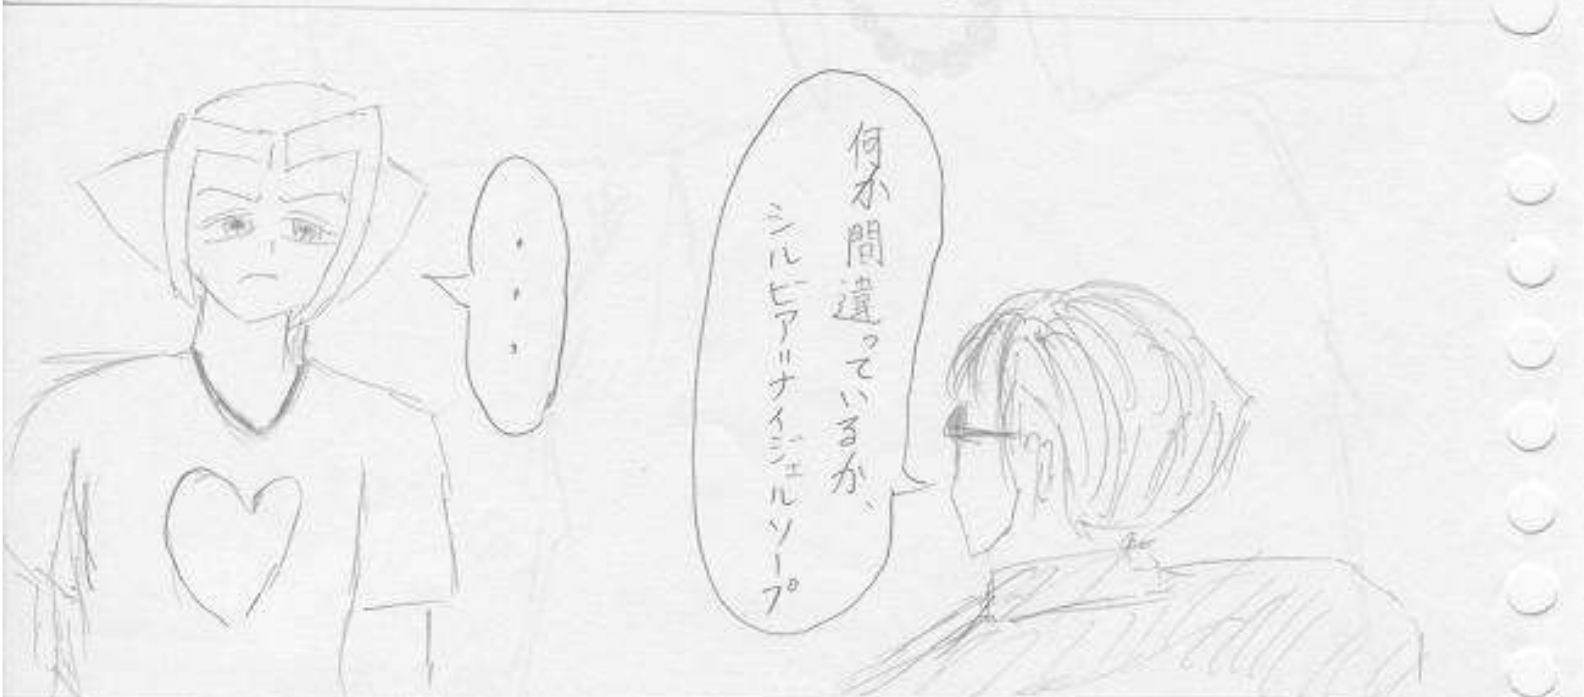 何か間違っているか、
シルビア=ナイジェルソープ
・・・